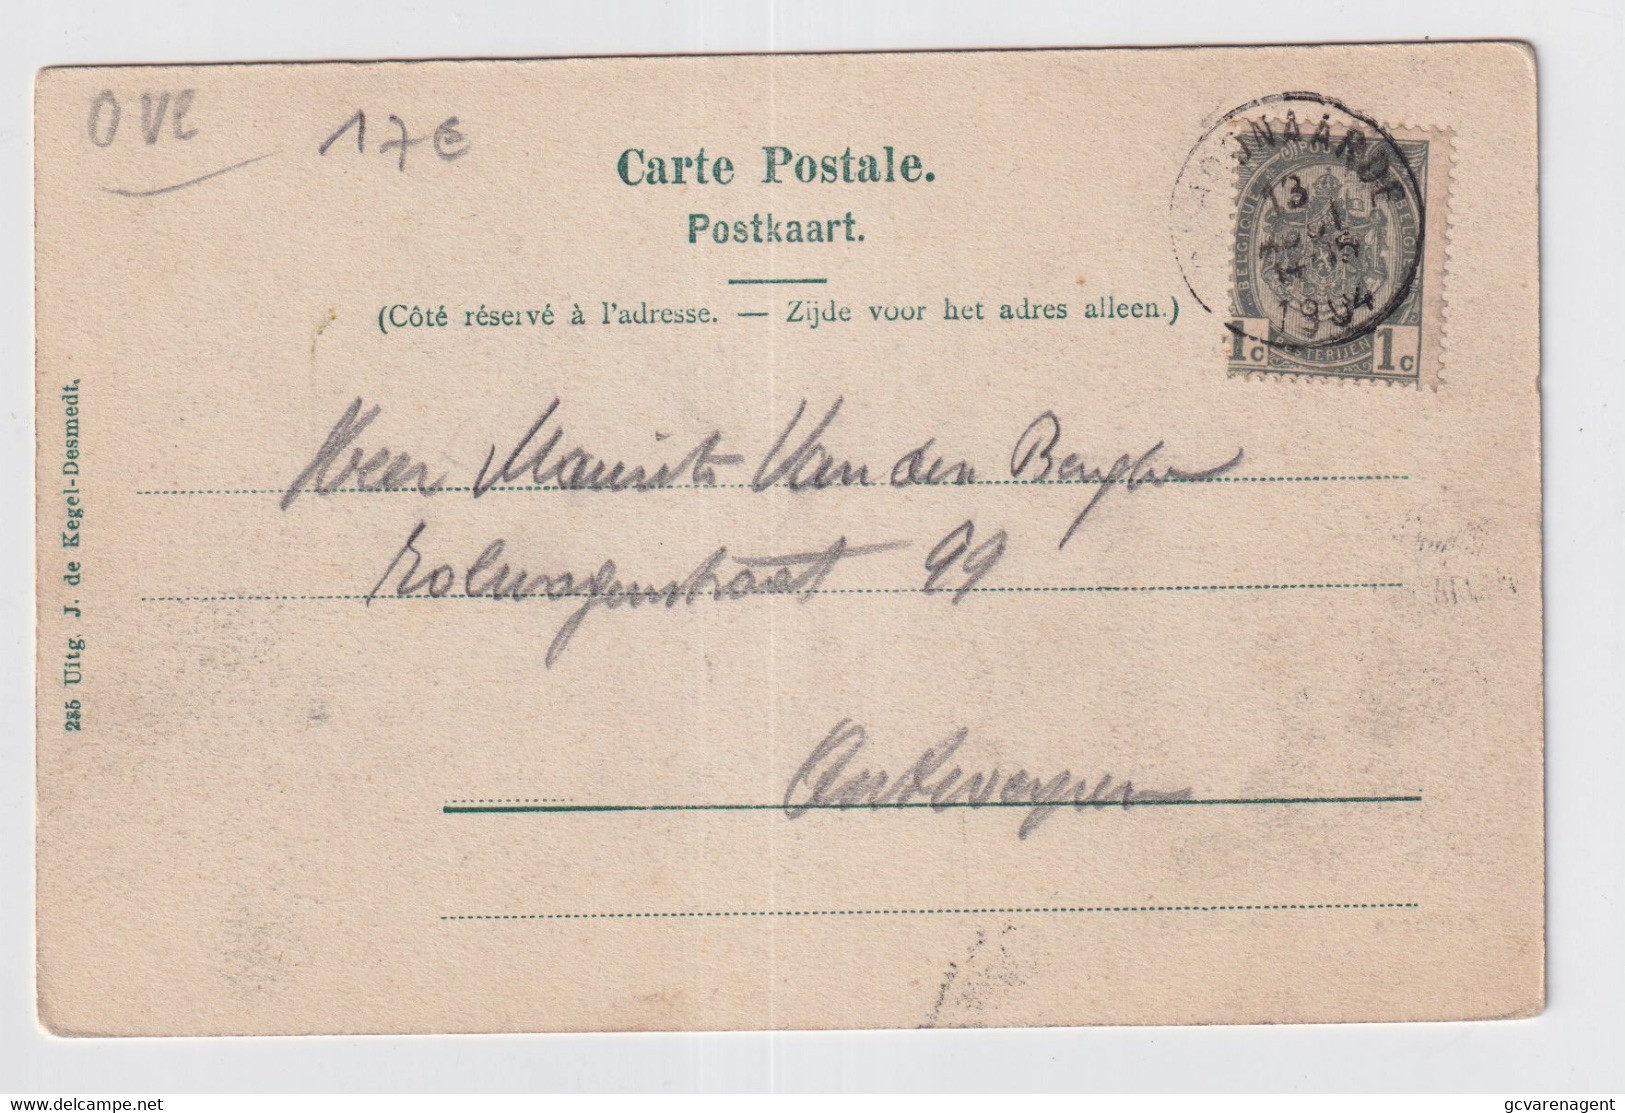 OVE
17€
Carte Postale.
Postkaart.
(Côté réservé à l'adresse. — Zijde voor het adres alleen.)
13
1904
BELGIQUE
BELGIË
POSTERIJEN
1c 1c
Heer Maurits Van den Berghe
99
Antwerpen
285 Uitg. J. de Kegel-Desmedt,
gcvarenagent